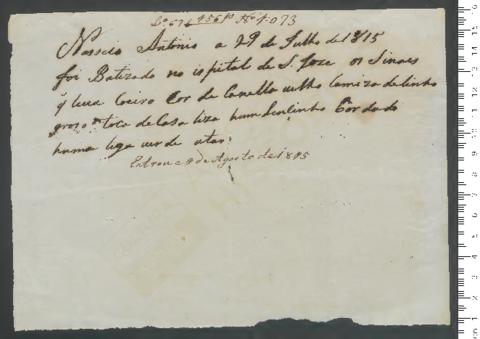 Lo 67 f 156 No 1073
Nasceo Antonio a 29 de Julho de 1815
foi Batizado no ospital de S. Joze os Sinaes
q leva Coeiro Cor de Canella velho Camiza de linho
groço toca de Casa liza hum Bordado
huma liga verde atar
Entrou a de Agosto de 1815